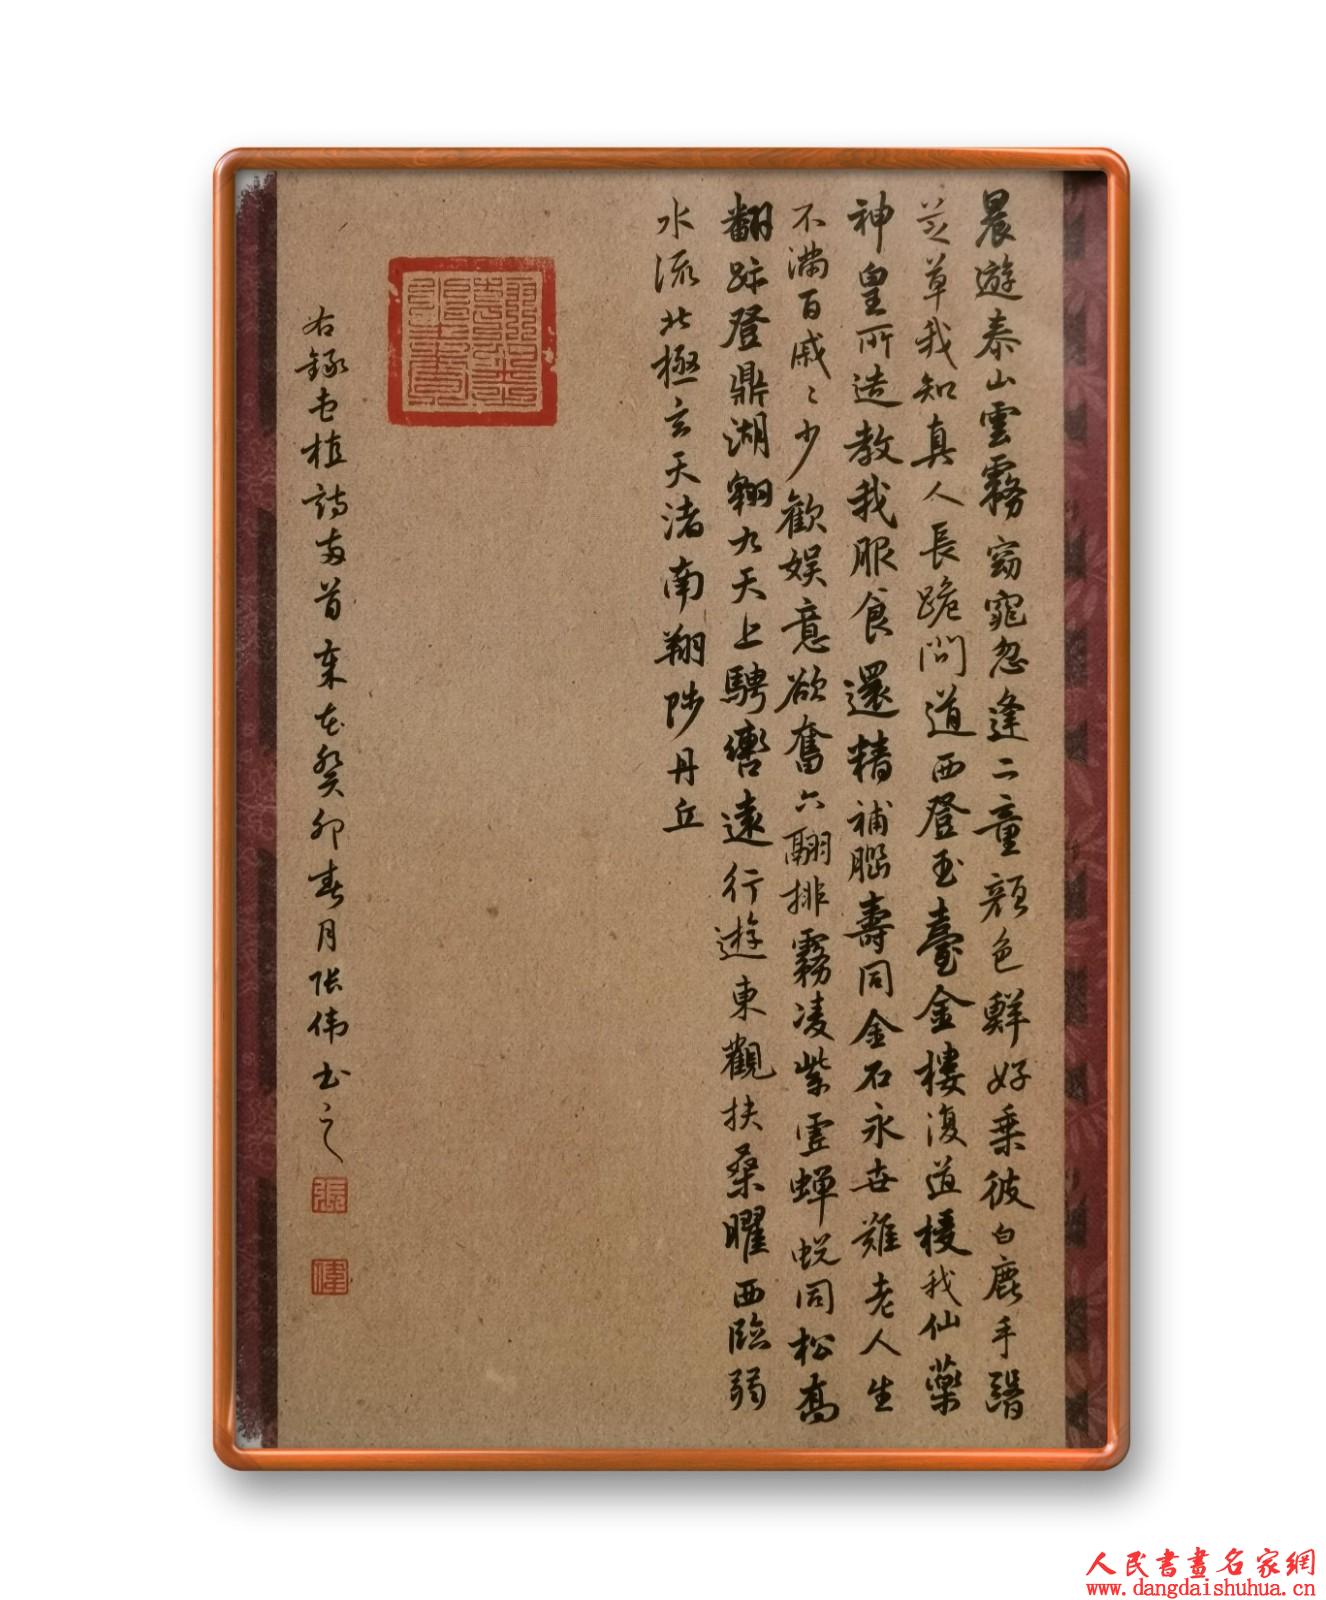 晨遊泰山雲霧窈窕忽逢二童顏色鮮好乘彼白鹿手翳
芝草我知真人長跪問道西登玉臺金樓復道授我仙藥
神皇所造教我服食還精補腦壽同金石永世難老人生
不滿百戚〻少歡娱意欲奮六翮排霧凌紫虛蟬蛻同松喬
翻跡登鼎湖翱九天上騁轡遠行遊東觀扶桑曜西臨弱
水流北極玄天渚南翔陟丹丘
右錄曹植詩两首 癸卯春月张伟书之
張
偉
人民書畫名家網
www.dangdaishuhua.cn